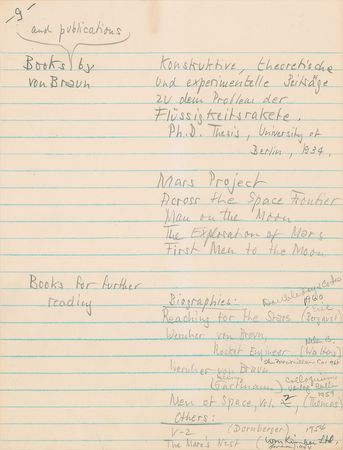 9
and publications
Books by
von Braun
Konstruktive, theoretische
und experimentelle Beiträge
zu dem Problem der
Flüssigkeitsrakete.
Ph.D. Thesis, University of
Berlin, 1934.
Mars Project
Across the Space Frontier
Man on the Moon
The Exploration of Mars
First Men to the Moon
Books for further
reading
Biographies:
1960
Reaching for the Stars (Erik Bergaust)
Wernher von Braun,
Rocket Engineer (Walters)
Wernher von Braun
(Gartmann)
1959
Men of Space, Vol. 2, (Thomas)
Others:
V-2 (Dornberger) 1954
The Mare's Nest (William Kimber Ltd.